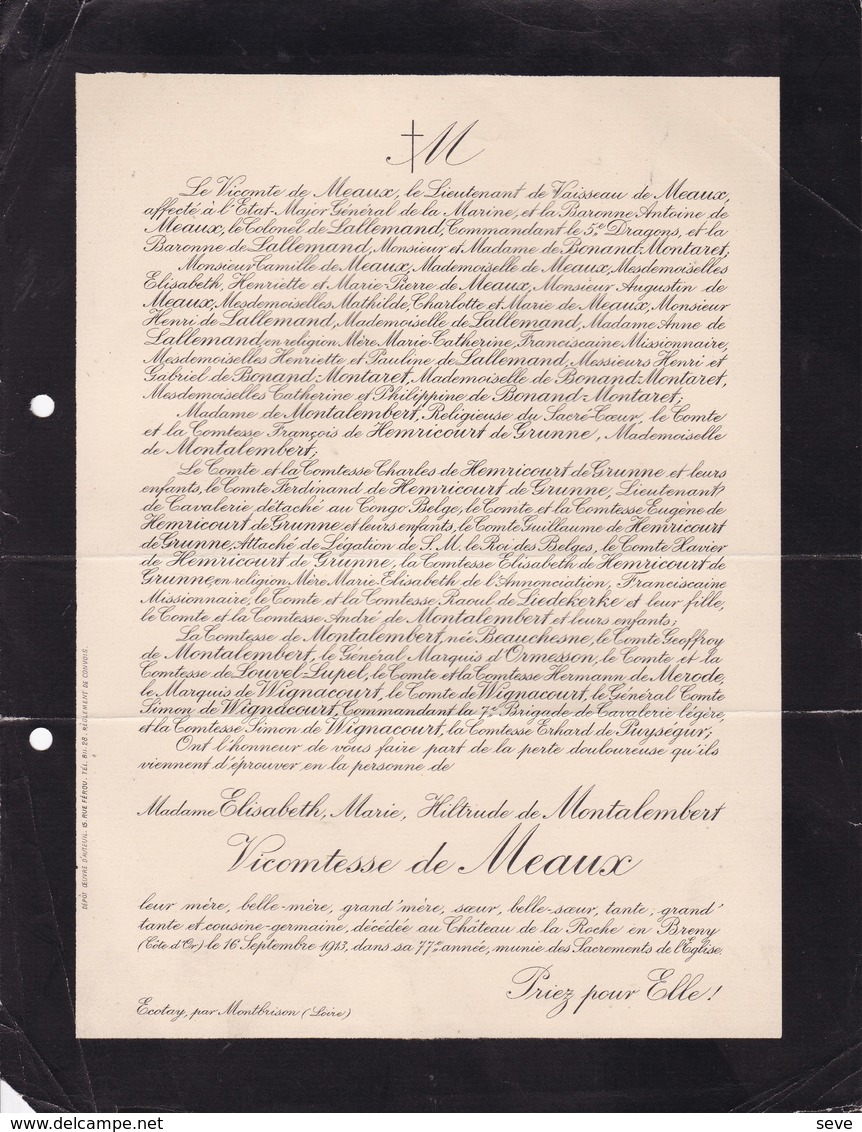 M
Le Vicomte de Meaux, le Lieutenant de Vaisseau de Meaux,
affecté à l'Etat-Major Général de la Marine, et la Baronne Antoine de
Meaux, le Colonel de Lallemand, Commandant le 5e Dragons, et la
Baronne de Lallemand, Monsieur et Madame de Bonand-Montaret;
Monsieur Camille de Meaux, Mademoiselle de Meaux, Mesdemoiselles
Elisabeth, Henriette et Marie-Pierre de Meaux, Monsieur Augustin de
Meaux, Mesdemoiselles Mathilde, Charlotte et Marie de Meaux, Monsieur
Henri de Lallemand, Mademoiselle de Lallemand, Madame Anne de
Lallemand, en religion Mère Marie-Catherine, Franciscaine Missionnaire,
Mesdemoiselles Henriette et Pauline de Lallemand, Messieurs Henri et
Gabriel de Bonand-Montaret, Mademoiselle de Bonand-Montaret,
Mesdemoiselles Catherine et Philippine de Bonand-Montaret;
Madame de Montalembert, Religieuse du Sacré-Cœur, le Comte
et la Comtesse François de Hemricourt de Grunne, Mademoiselle
de Montalembert;
Le Comte et la Comtesse Charles de Hemricourt de Grunne et leurs
enfants, le Comte Ferdinand de Hemricourt de Grunne, Lieutenant
de Cavalerie, détaché au Congo Belge, le Comte et la Comtesse Eugène de
Hemricourt de Grunne et leurs enfants, le Comte Guillaume de Hemricourt
de Grunne, Attaché de Légation de S. M. le Roi des Belges, le Comte Xavier
de Hemricourt de Grunne, la Comtesse Elisabeth de Hemricourt de
Grunne, en religion Mère Marie-Elisabeth de l'Annonciation, Franciscaine
Missionnaire, le Comte et la Comtesse Raoul de Liedekerke et leur fille,
le Comte et la Comtesse André de Montalembert et leurs enfants;
La Comtesse de Montalembert, née Beauchesne, le Comte Geoffroy
de Montalembert, le Général Marquis d'Ormesson, le Comte et la
Comtesse de Louvel-Lupel, le Comte et la Comtesse Hermann de Merode,
le Marquis de Wignacourt, le Comte de Wignacourt, le Général Comte
Simon de Wignacourt, Commandant la 7e Brigade de Cavalerie légère,
et la Comtesse Simon de Wignacourt, la Comtesse Erhard de Puysegur;
Ont l'honneur de vous faire part de la perte douloureuse qu'ils
viennent d'éprouver en la personne de
Madame Elisabeth, Marie, Hiltrude de Montalembert
Vicomtesse de Meaux
leur mère, belle-mère, grand'mère, sœur, belle-sœur, tante, grand'
tante et cousine-germaine, décédée au Château de la Roche en Breny
(Côte d'Or) le 16 Septembre 1913, dans sa 77e année, munie des Sacrements de l'Eglise.
Priez pour Elle!
Ecotay, par Montbrison (Loire)
DÉPÔT ŒUVRE D'AUTEUIL, 15, RUE FÉROU, TÉL. 811-28, RÈGLEMENT DE CONVOIS.
seve